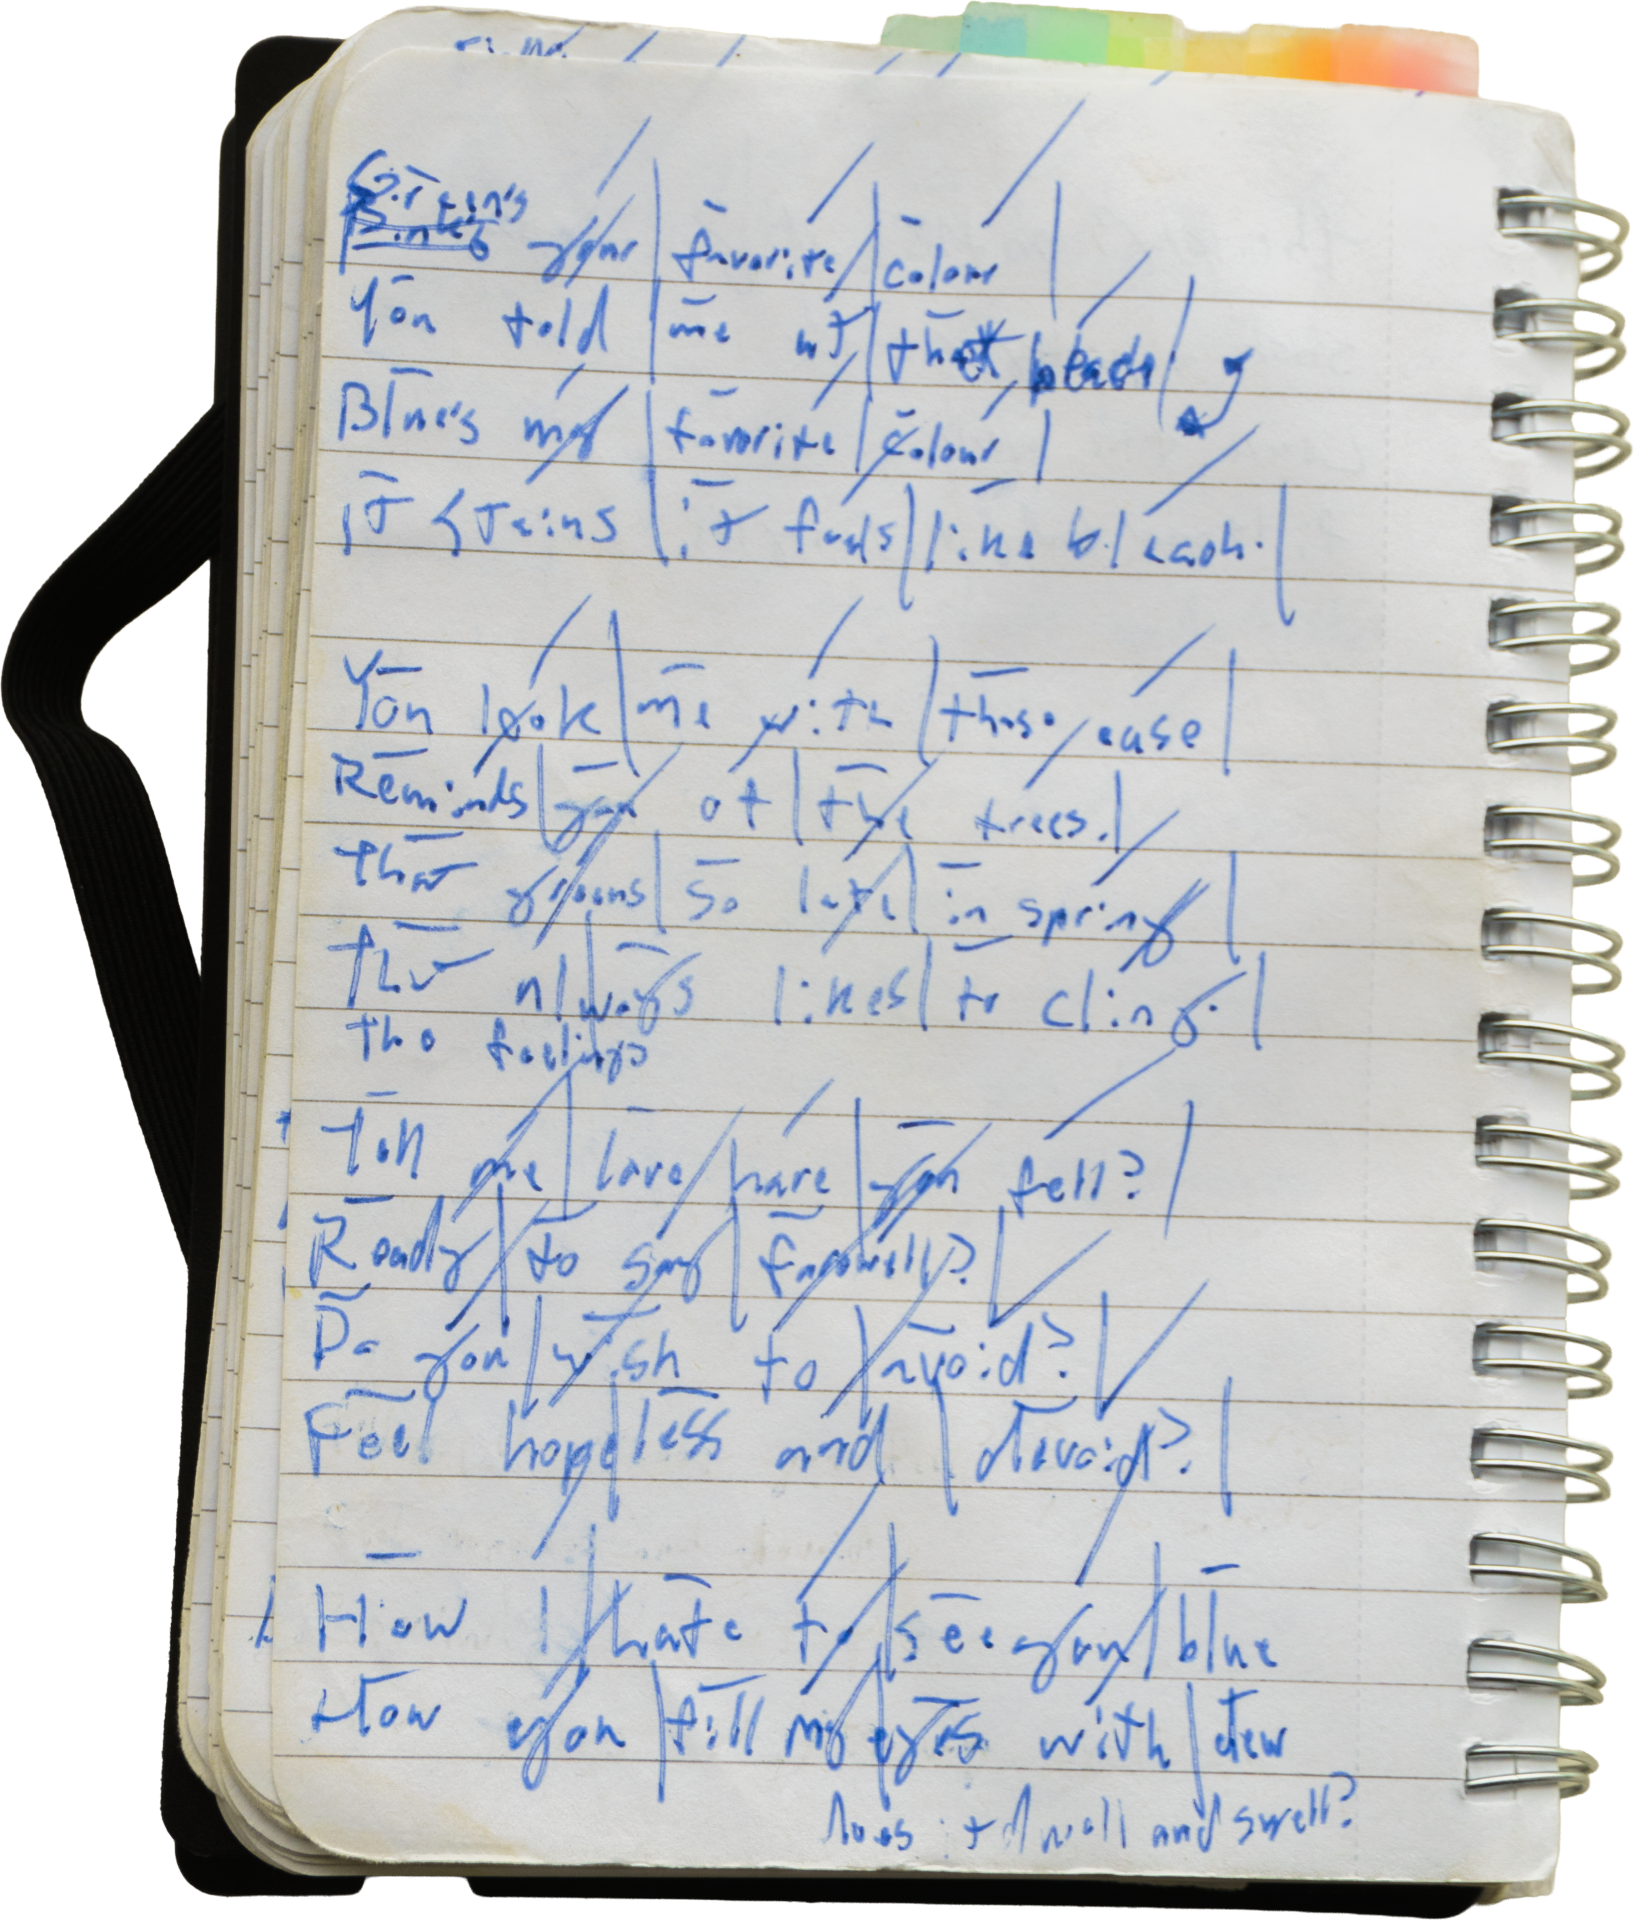 Green's your favorite colour
You told me at that beach
Blue's my favorite colour
it stains it feels like bleach.
You look me with those ease
Reminds you of the trees.
that greens so late in spring
that always likes to cling.
the feelings
Tell me love have you fell?
Ready to say farewell?
Do you wish to avoid?
Feel hopeless and devoid?
How I hate to see you blue
How you fill my eyes with dew
does it dwell and swell?